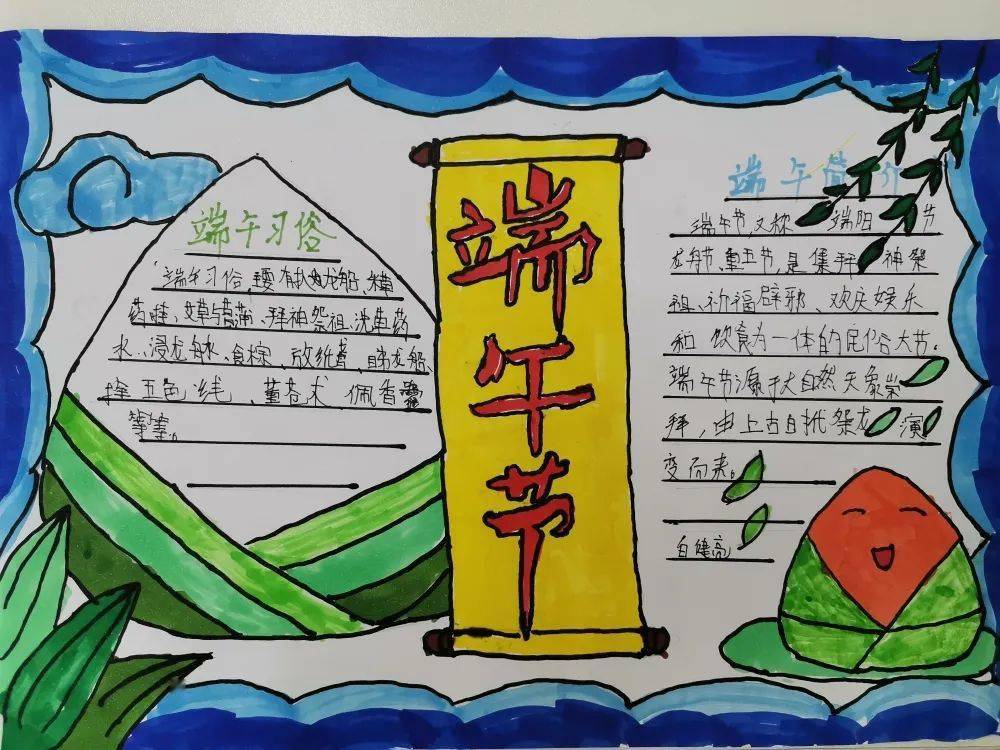 端午习俗
端午习俗,主要有扒龙船、采
药、挂艾草与菖蒲、拜神祭祖、洗草药
水、浸龙舟水、食粽、放纸鸢、睇龙船、
拴五色线、薰苍术、佩香囊
等等。
端
午
节
端午简介
端午节,又称端阳节
龙舟节、重五节,是集拜神祭
祖、祈福辟邪、欢庆娱乐
和饮食为一体的民俗大节。
端午节源于大自然天象崇
拜,由上古时代祭龙演
变而来。
白健亮